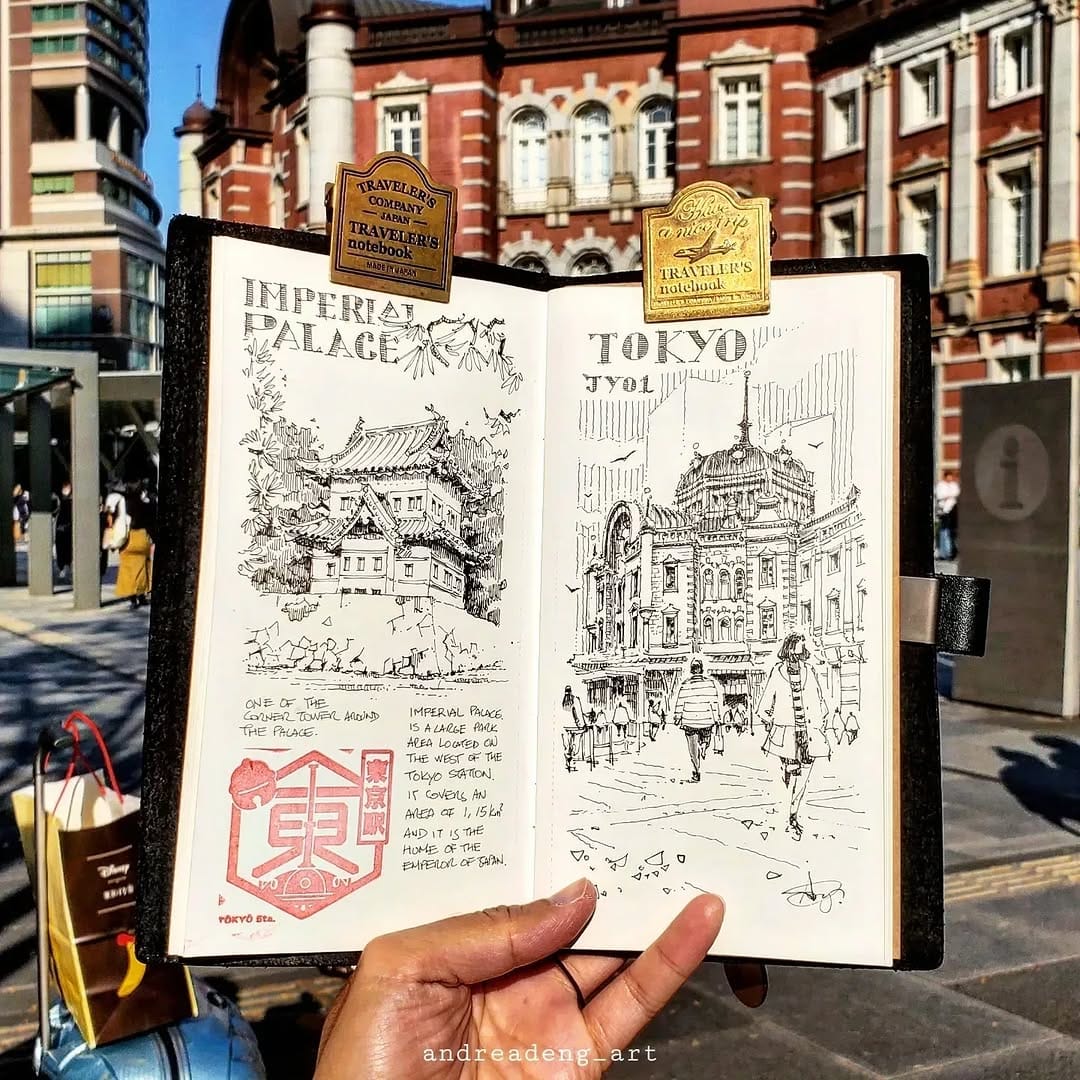 TRAVELER'S
COMPANY
JAPAN
TRAVELER'S
notebook
MADE IN JAPAN
Have
a nice trip
TRAVELER'S
notebook
IMPERIAL
PALACE
ONE OF THE
CORNER TOWER AROUND
THE PALACE.
東京駅
東
TOKYO Sta.
IMPERIAL PALACE.
IS A LARGE PARK
AREA LOCATED ON
THE WEST OF THE
TOKYO STATION.
IT COVERS AN
AREA OF 1,15 km²
AND IT IS THE
HOME OF THE
EMPEROR OF JAPAN.
TOKYO
JY01
i
Disney
andreadeng_art